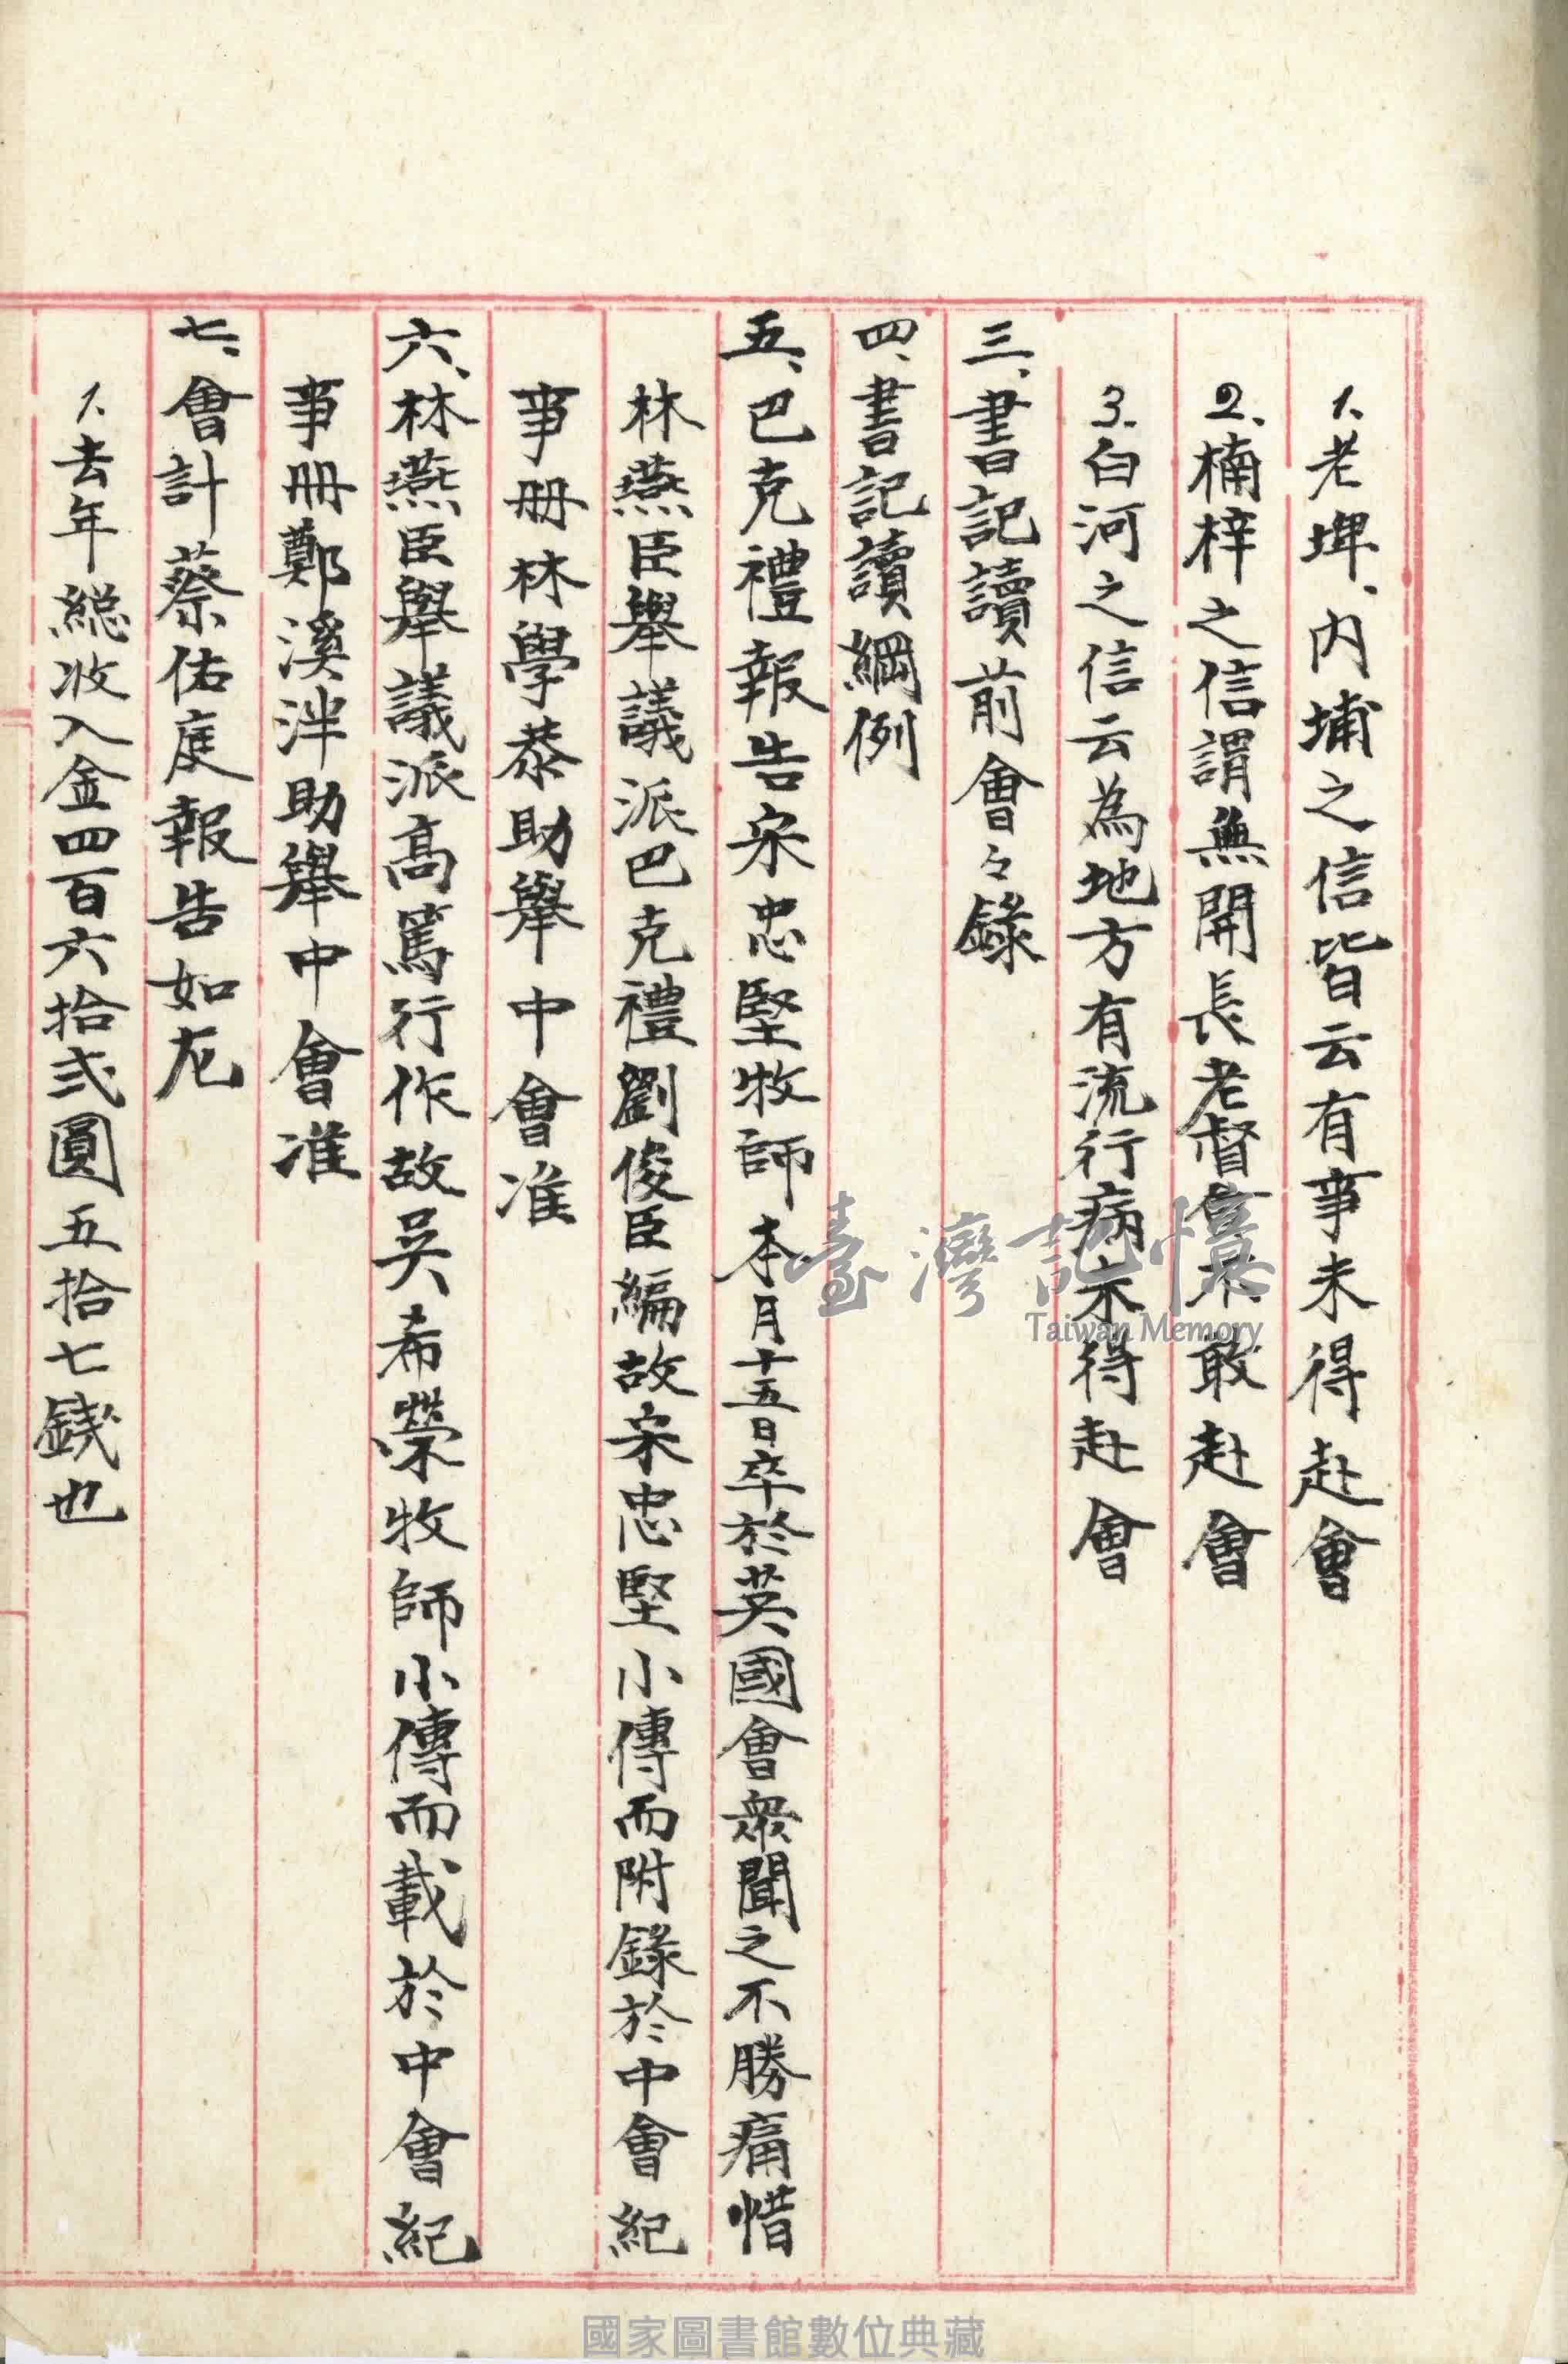 1、老埤、內埔之信皆云有事未得赴會
2、楠梓之信謂無開長老督會不敢赴會
3、白河之信云為地方有流行病未得赴會
三、書記讀前會々錄
四、書記讀綱例
五、巴克禮報告宋忠堅牧師本月十五日卒於英國會衆聞之不勝痛惜
林燕臣舉議派巴克禮劉俊臣編故宋忠堅小傳而附錄於中會紀
事冊林學恭助舉中會准
六、林燕臣舉議派高篤行作故吳希榮牧師小傳而載於中會紀
事冊鄭溪泮助舉中會准
七、會計蔡佑庭報告如左
1、去年総收入金四百六拾弍圓五拾七錢也
臺灣記憶
Taiwan Memory
國家圖書館數位典藏